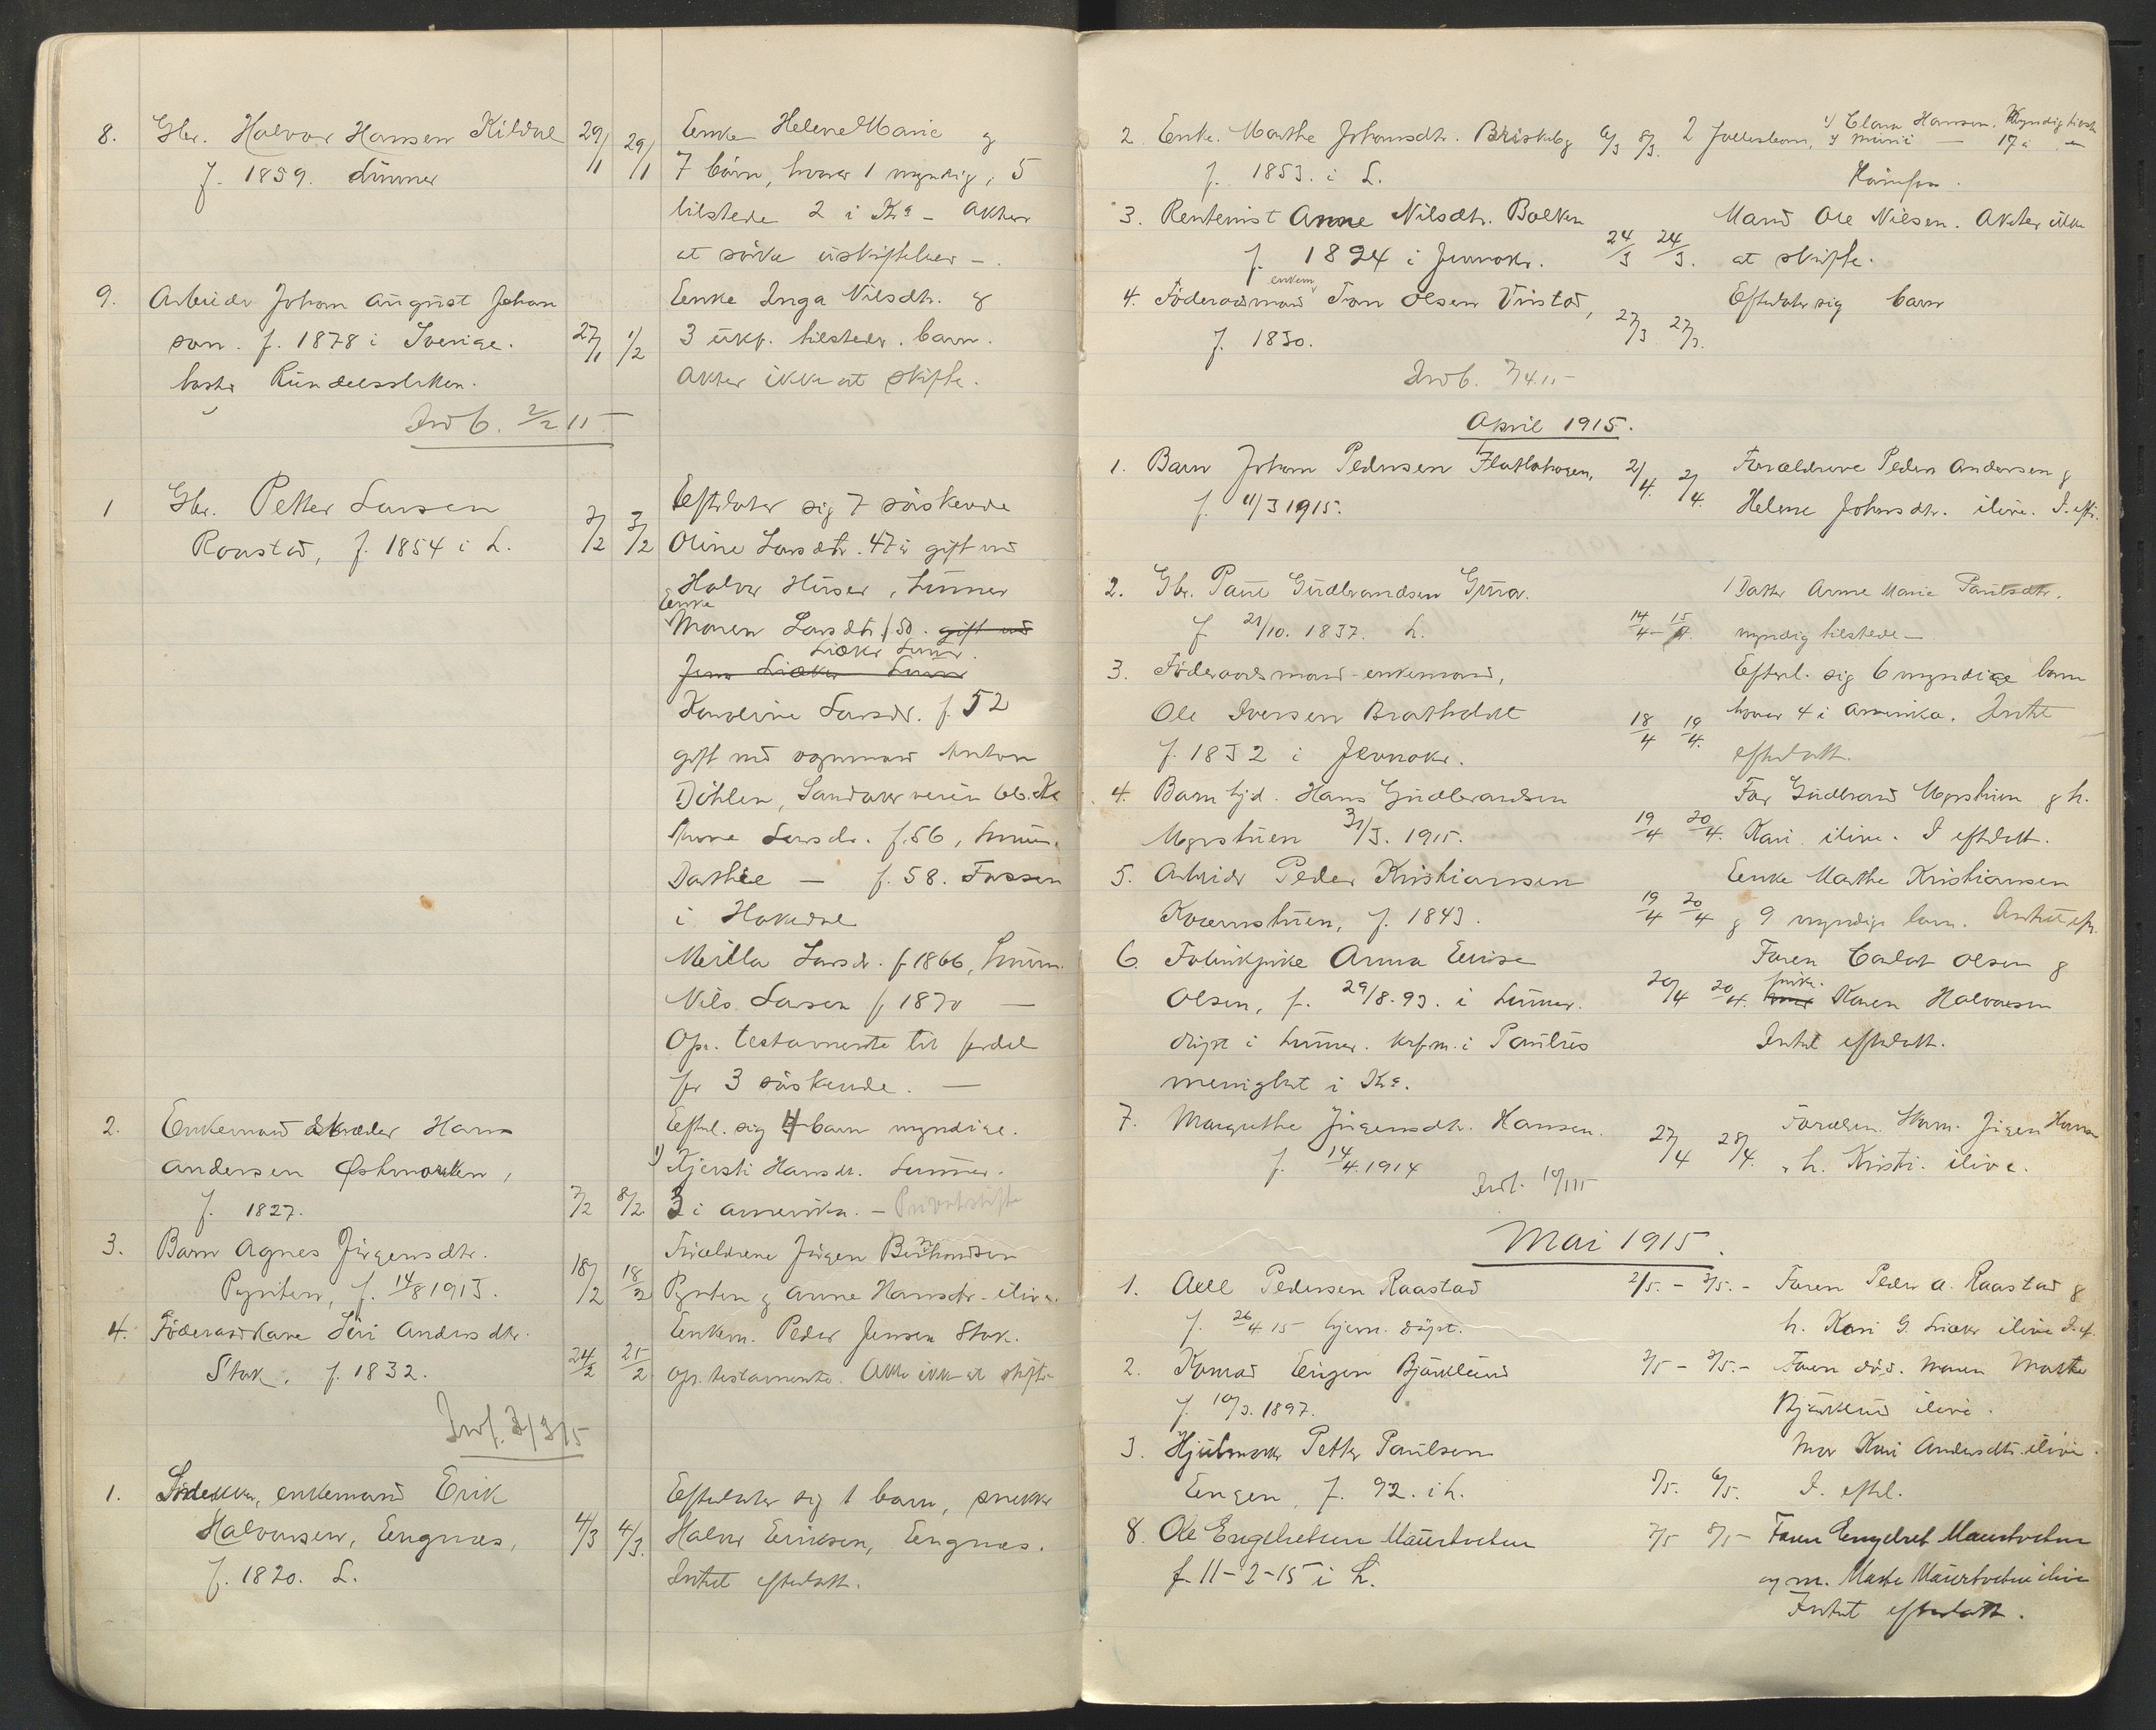 8. Gbr. Halvor Hansen Kildal 29/1 29/1 Enke Helene Marie og
f. 1859. Lunner 7 börn, hvorav 1 myndig, 5
tilstede 2 i Kra - Akter
at söke uskiftebev -.
9. Arbeider Johan August Johan Enke Inga Nilsdtr. &
son. f. 1878 i Sverige. 27/1 1/2 3 ukf. tilstedev. barn.
Akter ikke at skifte.
Indb. 2/2 15
1 Gbr. Petter Larsen Efterlater sig 7 söskende
Roastad, f. 1854 i L. 3/2 3/2 Oline Larsdtr. 47 år gift med
Halvor Huser, Lunner
Enke
Maren Larsdtr. f 50. gift med
Liöker Lunner.
Jens Liöker Lunner
Karoline Larsdr. f. 52
gift med vognmand Anton
Döhlen, Sandakerveien 66. Kra
Anne Larsdr. f. 56, Lunner.
Dorthe — f. 58. Fossen
i Hakedal
Milla Larsdr. f 1866, Lunner.
Nils Larsen f 1870 —
Opr. testamente til fordel
for 3 söskende. —
2. Enkemand skræder Hans Efterl. sig 4 barn myndige.
Andersen Østmorken, 1) Kjersti Hansdr. Lunner.
f. 1827. 7/2 8/2 3 i Amerika. - Privatskifte
3. Barn Agnes Jörgensdtr. Forældrene Jörgen Berntsen
Pynten, f. 14/8 1913. 18/2 18/2 Pynten & Anne Hansdtr. ilive.
4. Föderaadskone Siri Andersdtr. Enkem. Peder Jensen Stok.
Stok, f. 1832. 24/2 25/2 opr. testamente. Akter ikke at skifte
Indf. 3/3 15
1. enkemand Erik Efterlater sig 1 barn, snekker
Halvorsen, Engnæs, 4/3 4/3. Halvor Eriksen, Engnæs.
f. 1820. L. Intet efterlatt.
2 Enke. Marthe Johansdtr. Briskeby 6/3 8/3. 2 Fellesbarn, 1) Clara Hansen. Myndig tilste
f. 1853. i L.
3. Rentenist Anne Nilsdtr. Bolken Mand Ole Nilsen. Akter ikke
f. 1824 i Jevnaker. 24/3 24/3. at skifte.
enkem
4. Föderaadsmand Ton Olsen Vristad, Efterlater sig barn
f. 1830. 27/3 27/3.
Indb. 7/4 15
April 1915.
1. Barn Johan Pedersen Flatlahagen, 2/4. 2/4. Forældrene Peder Andersen &
f. 11/3 1915. Helene Johansdtr. ilive. I. eft.
2. Gbr. Paul Gudbrandsen Grua. 1 Datter Anne Marie Paulsdtr.
f 21/10. 1837. L. 14/4 - 15/4. myndig tilstede -
3. Föderaadsmand - enkemand, Efterl. sig 6 myndige barn
Ole Iversen Bratholdt 18/4 19/4. hvorav 4 i Amerika. Intet
f. 1832 i Jevnaker. efterlatt.
4. Barn hjd. Hans Gudbrandsen Far Gudbrand Myrstuen & h.
Myrstuen 31/3. 1915. 19/4 20/4. Kari ilive. I efterlatt.
5. Arbeider Peder Kristiansen Enke Marthe Kristiansen
Kværnstuen, f. 1843. 19/4 20/4 & 9 myndige barn. Intet eft.
6. Fabrikpike Anna Elise Faren Carlot Olsen &
Olsen, f. 29/8. 93. i Lunner. 20/4 20/4. Karen Halvorsen
döpt i Lunner. kofm. i Paulus Intet efterlatt.
menighet i Kra.
7. Margrethe Jörgensdtr. Hansen. 27/4 28/4. Forælder. Skom. Jörgen Hansen
f. 14/4. 1914 & h. Kristi. ilive.
Indb.
Mai 1915.
1. Axel Pedersen Raastad 2/5. - 3/5. - Faren Peder A. Raastad &
f. 26/4 15 hjem. döpt. h. Kari G. ilive I. ef.
2. Konrad Engen Bjørklund 3/5 - 3/5. - Faren död. Moren Marthe
f. 10/3. 1897. Bjørklund ilive.
3. Hjulmaker Petter Paulsen Mor Kari Andersdtr. ilive.
Engen, f. 92. i L. 5/5. 6/5. I. efterl.
8. Ole Engebretsen Maurtvetun 7/5 8/5 - Faren Engebret Maurtvetun
f. 11-2-15 i L. og m. Marthe Maurtvetun ilive
Intet efterlatt.